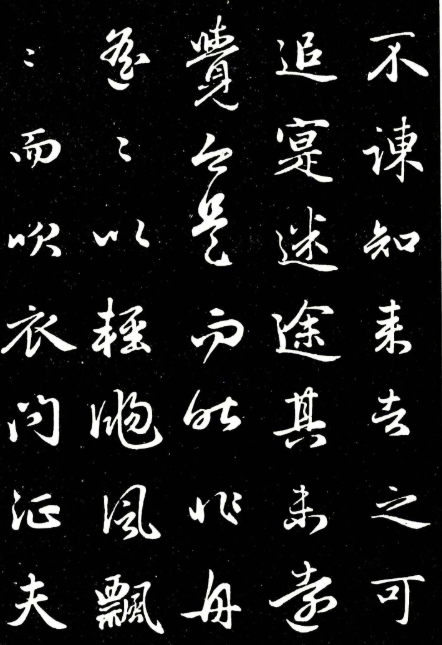 不諫知来者之可
追寔迷途其未遠
覺今是而昨非舟
遙〻以輕颺風飄
〻而吹衣問征夫